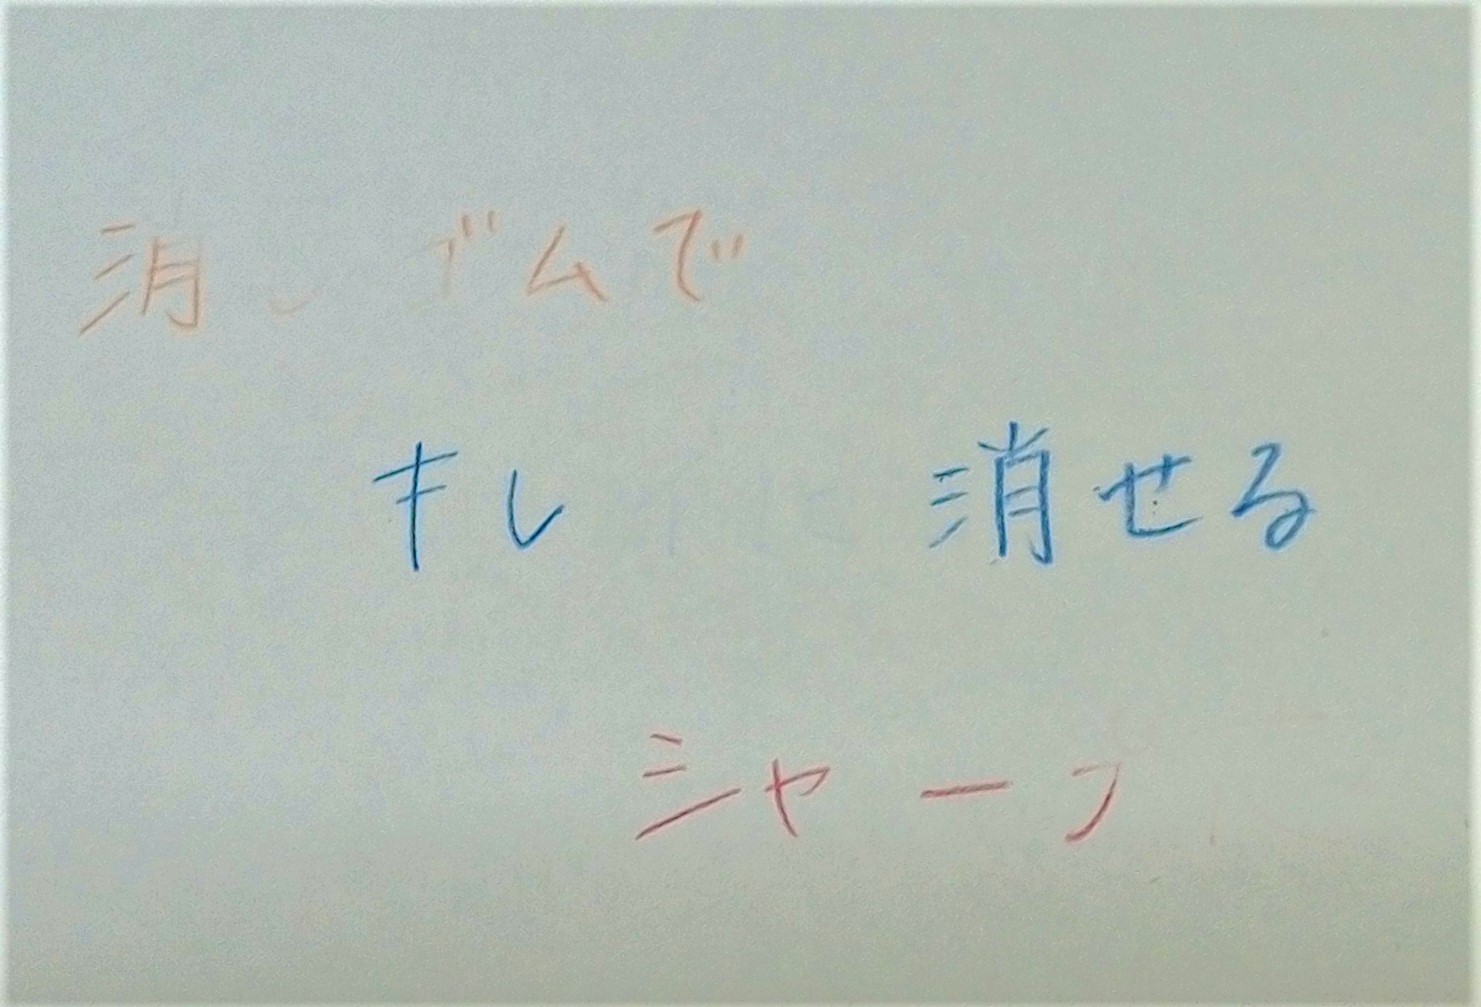 消しゴムで
キレイに消せる
シャープ